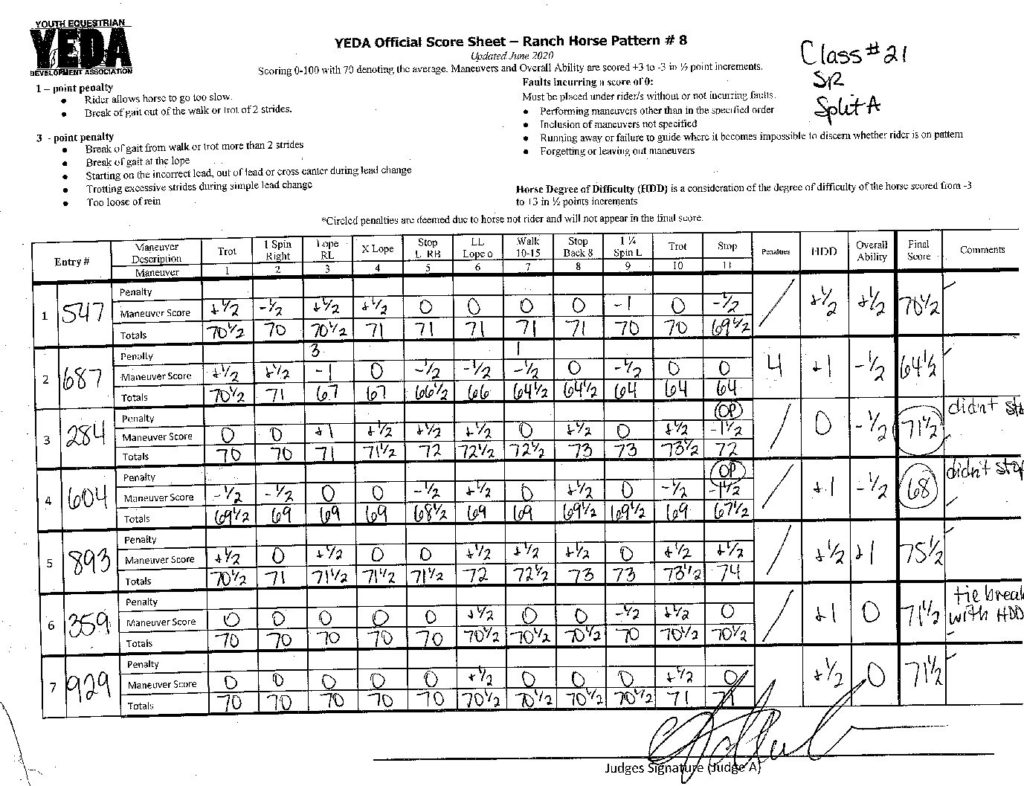 YOUTH EQUESTRIAN
YEDA
DEVELOPMENT ASSOCIATION
YEDA Official Score Sheet – Ranch Horse Pattern # 8
Updated June 2020
Scoring 0-100 with 70 denoting the average. Maneuvers and Overall Ability are scored +3 to -3 in ½ point increments.
Class # 21
SR
Split A
1 – point penalty
• Rider allows horse to go too slow.
• Break of gait out of the walk or trot of 2 strides.
3 - point penalty
• Break of gait from walk or trot more than 2 strides
• Break of gait at the lope
• Starting on the incorrect lead, out of lead or cross canter during lead change
• Trotting excessive strides during simple lead change
• Too loose of rein
Faults incurring a score of 0:
Must be placed under rider/s without or not incurring faults.
• Performing maneuvers other than in the specified order
• Inclusion of maneuvers not specified
• Running away or failure to guide where it becomes impossible to discern whether rider is on pattern
• Forgetting or leaving out maneuvers
Horse Degree of Difficulty (HDD) is a consideration of the degree of difficulty of the horse scored from -3
to +3 in ½ points increments
*Circled penalties are deemed due to horse not rider and will not appear in the final score.
Entry # Maneuver Description Trot 1 Spin Right Lope RL X Lope Stop L RB LL Lope o Walk 10-15 Stop Back 8 1 ¼ Spin L Trot Stop Penalties HDD Overall Ability Final Score Comments
Maneuver 1 2 3 4 5 6 7 8 9 10 11
1 547 Penalty
Maneuver Score +½ -½ +½ +½ 0 0 0 0 -1 0 -½ / +½ +½ 70½
Totals 70½ 70 70½ 71 71 71 71 71 70 70 69½
2 687 Penalty 3 1
Maneuver Score +½ +½ -1 0 -½ -½ -½ 0 -½ 0 0 4 +1 -½ 64½
Totals 70½ 71 67 67 66½ 66 64½ 64½ 64 64 64
3 284 Penalty OP didnt
Maneuver Score 0 0 +1 +½ +½ +½ 0 +½ 0 +½ -1½ / 0 -½ 71½
Totals 70 70 71 71½ 72 72½ 72½ 73 73 73½ 72
4 604 Penalty OP didn't stop
Maneuver Score -½ -½ 0 0 -½ +½ 0 +½ 0 -½ -1½ / +1 -½ 68
Totals 69½ 69 69 69 68½ 69 69 69½ 69½ 69 67½
5 893 Penalty
Maneuver Score +½ 0 +½ 0 0 +½ +½ +½ 0 +½ +½ / +½ +1 75½
Totals 70½ 71 71½ 71½ 71½ 72 72½ 73 73 73½ 74
6 359 Penalty tie break
Maneuver Score 0 0 0 0 0 +½ 0 0 -½ +½ 0 / +1 0 71½ with HDD
Totals 70 70 70 70 70 70½ 70½ 70½ 70 70½ 70½
7 929 Penalty
Maneuver Score 0 0 0 0 0 +½ 0 0 0 +½ 0 +½ 0 71½
Totals 70 70 70 70 70 70½ 70½ 70½ 70½ 71 71
Judges Signature (Judge A)